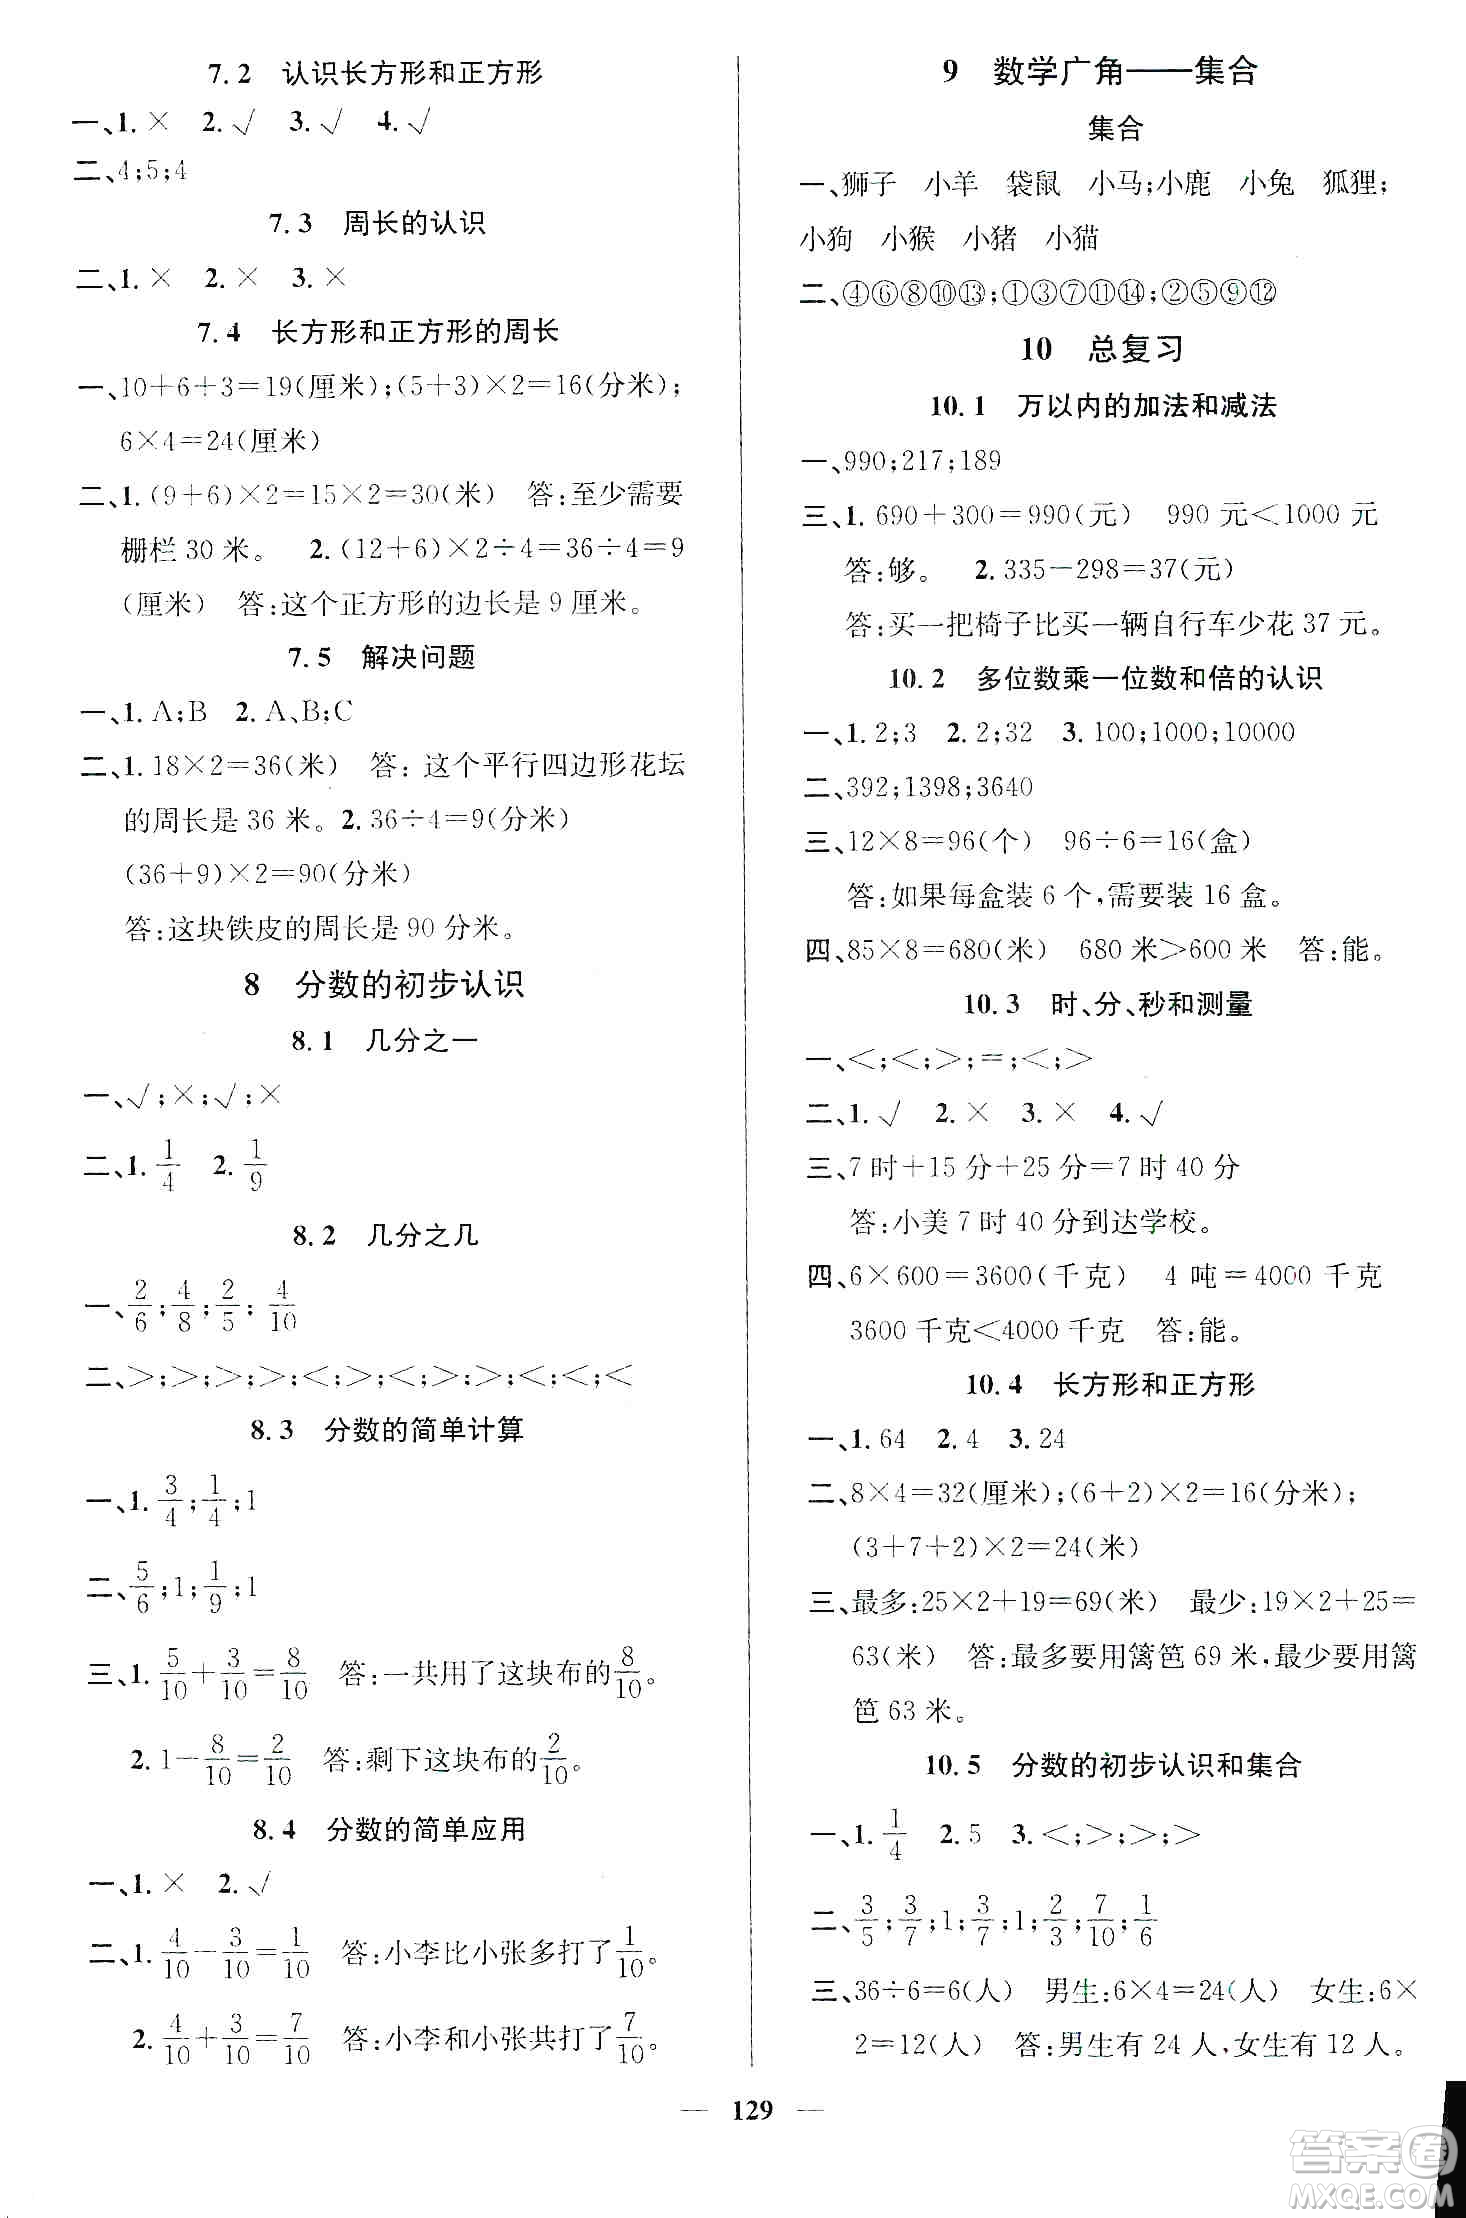 7.2 认识长方形和正方形
一、1. × 2. √ 3. √ 4. √
二、4;5;4
7.3 周长的认识
二、1. × 2. × 3. ×
7.4 长方形和正方形的周长
一、10+6+3=19(厘米);(5+3)×2=16(分米);
6×4=24(厘米)
二、1. (9+6)×2=15×2=30(米) 答:至少需要
栅栏 30 米。 2. (12+6)×2÷4=36÷4=9
(厘米) 答:这个正方形的边长是 9 厘米。
7.5 解决问题
一、1. A;B 2. A、B;C
二、1. 18×2=36(米) 答: 这个平行四边形花坛
的周长是 36 米。2. 36÷4=9(分米)
(36+9)×2=90(分米)
答:这块铁皮的周长是 90 分米。
8 分数的初步认识
8.1 几分之一
一、√;×;√;×
二、1. 1/4 2. 1/9
8.2 几分之几
一、2/6;4/8;2/5;4/10
二、>;>;>;>;<;<;<;>;>;<;<;<
8.3 分数的简单计算
一、1. 3/4;1/4;1
二、5/6;1;1/9;1
三、1. 5/10+3/10=8/10 答:一共用了这块布的8/10。
2. 1-8/10=2/10 答:剩下这块布的2/10。
8.4 分数的简单应用
一、1. × 2. √
二、1. 4/10-3/10=1/10 答:小李比小张多打了1/10。
2. 4/10+3/10=7/10 答:小李和小张共打了7/10。
9 数学广角——集合
集合
一、狮子 小羊 袋鼠 小马;小鹿 小兔 狐狸;
小狗 小猴 小猪 小猫
二、④⑥⑧⑩⑬;①③⑦⑪⑭;②⑤⑨⑫
10 总复习
10.1 万以内的加法和减法
一、990;217;189
三、1. 690+300=990(元) 990 元<1000 元
答:够。 2. 335-298=37(元)
答:买一把椅子比买一辆自行车少花 37 元。
10.2 多位数乘一位数和倍的认识
一、1. 2;3 2. 2;32 3. 100;1000;10000
二、392;1398;3640
三、12×8=96(个) 96÷6=16(盒)
答:如果每盒装 6 个,需要装 16 盒。
四、85×8=680(米) 680 米>600 米 答:能。
10.3 时、分、秒和测量
一、<;<;>;=;<;>
二、1. √ 2. × 3. × 4. √
三、7 时+15 分+25 分=7 时 40 分
答:小美 7 时 40 分到达学校。
四、6×600=3600(千克) 4 吨=4000 千克
3600 千克<4000 千克 答:能。
10.4 长方形和正方形
一、1. 64 2. 4 3. 24
二、8×4=32(厘米);(6+2)×2=16(分米);
(3+7+2)×2=24(米)
三、最多:25×2+19=69(米) 最少:19×2+25=
63(米) 答:最多要用篱笆 69 米,最少要用篱
笆 63 米。
10.5 分数的初步认识和集合
一、1. 1/4 2. 5 3. <;>;>;>
二、3/5;3/7;1;3/7;1;2/3;7/10;1/6
三、36÷6=6(人) 男生:6×4=24(人) 女生:6×
2=12(人) 答:男生有 24 人,女生有 12 人。
— 129 —
答案圈
MXQE.COM